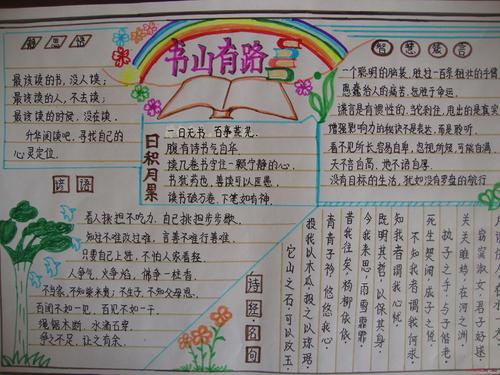 书山有路
最该读的书，没人读；
最该读的人，不去读；
最该读的时候，没在读。
升华阅读吧，寻找自己的
心灵定位。
智慧箴言
一个聪明的脑袋，胜过一百条粗壮的手臂
愚蠢给人的痛苦，甚于命运。
谎言是有惯性的，当它刹住，甩出的是真实
增强影响力的秘诀不是表达，而是聆听。
看不见所长，容易自卑，忽视所短，可能自满。
天不言自高，地不语自厚。
没有目标的生活，犹如没有罗盘的航行
日积月累
一日无书，百事荒芜。
腹有诗书气自华
读书破万卷，下笔如有神。
谚语
看人挑担不吃力，自己挑担步步歇。
知过不难改过难，言善不难行善难。
只要自己上进，不怕人家看轻。
人争气，火争焰，佛争一柱香。
不当家，不知柴米贵；不生子，不知父母恩。
百闻不如一见，百见不如一干。
绳锯木断，水滴石穿。
争之不足，让之有余。
诗经·名句
它山之石可以攻玉
投我以木瓜，报之以琼琚
青青子衿，悠悠我心
昔我往矣，杨柳依依
今我来思，雨雪霏霏
既明且哲，以保其身
知我者谓我心忧
不知我者谓我何求
死生契阔，与子成说
执子之手，与子偕老
关关雎鸠，在河之洲
窈窕淑女，君子好逑